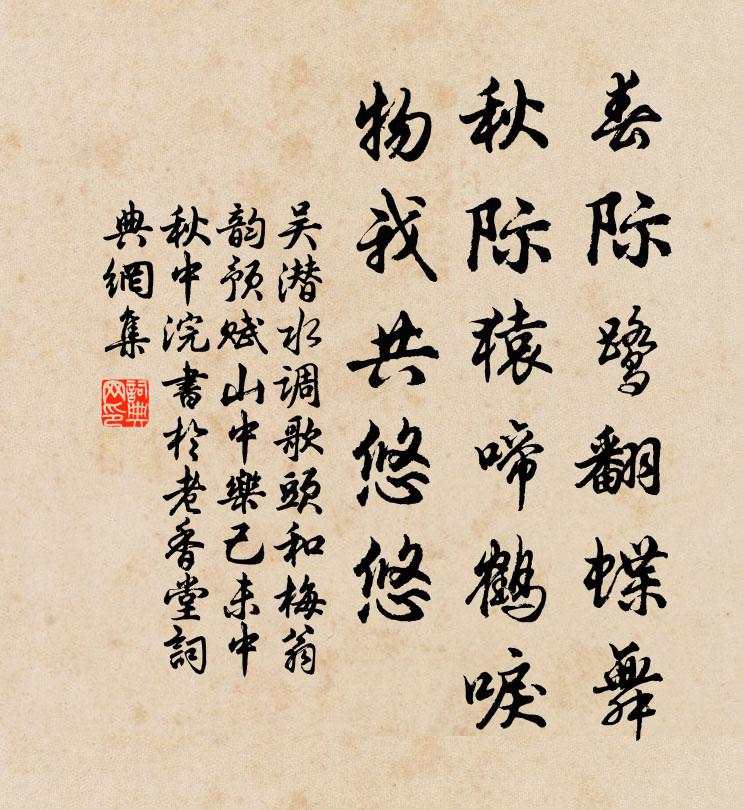 春际鹭翻蝶舞
秋际猿啼鹤唳
物我共悠悠
吴潜水调歌头和梅翁
韵预赋山中樂己未中
秋中浣書於老香堂詞
典網集
詞典
网印